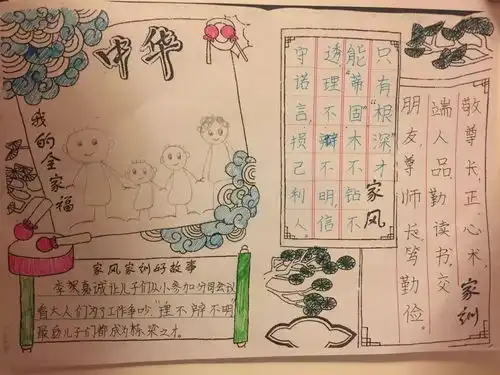 中华
我的全家福
只有“根深”,才
能“蒂固”木不钻不
透,理不辩不明,信
守诺言,损己利人
家风
敬尊长,正心术,
端人品,勤读书,交
朋友,尊师长,笃勤俭。
家训
家风家训好故事
李嘉诚让儿子们从小参加公司会议
看大人们为了工作争吵“理不辩不明”
最后儿子们都成为栋梁之才。